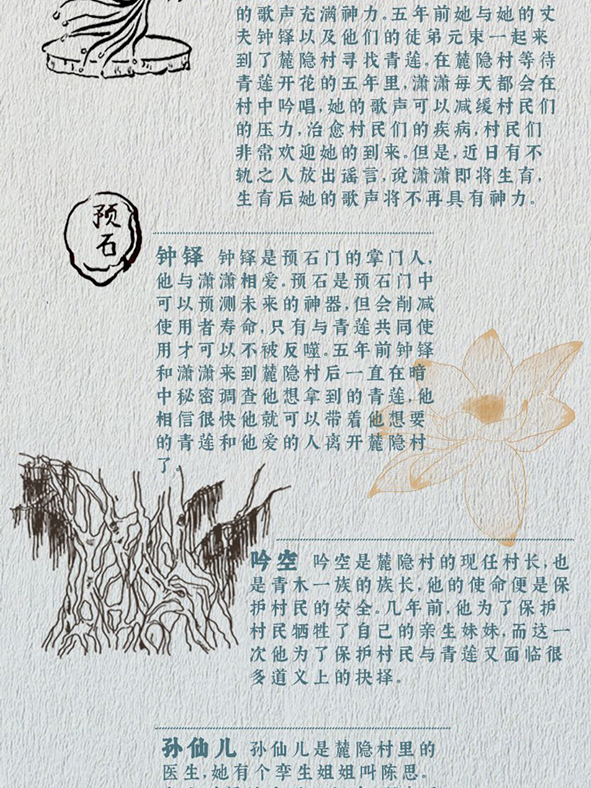 的歌声充满神力。五年前她与她的丈
夫钟铎以及他们的徒弟元束一起来
到了麓隐村寻找青莲,在麓隐村等待
青莲开花的五年里,潇潇每天都会在
村中吟唱,她的歌声可以减缓村民们
的压力,治愈村民们的疾病,村民们
非常欢迎她的到来。但是,近日有不
轨之人放出谣言,说潇潇即将生育,
生育后她的歌声将不再具有神力。
预石
钟铎 钟铎是预石门的掌门人,
他与潇潇相爱。预石是预石门中
可以预测未来的神器,但会削减
使用者寿命,只有与青莲共同使
用才可以不被反噬。五年前钟铎
和潇潇来到麓隐村后一直在暗
中秘密调查他想拿到的青莲,他
相信很快他就可以带着他想要
的青莲和他爱的人离开麓隐村
了
吟空 吟空是麓隐村的现任村长,也
是青木一族的族长,他的使命便是保
护村民的安全。几年前,他为了保护
村民牺牲了自己的亲生妹妹,而这一
次他为了保护村民与青莲又面临很
多道义上的抉择。
孙仙儿 孙仙儿是麓隐村里的
医生,她有个孪生姐姐叫陈思。